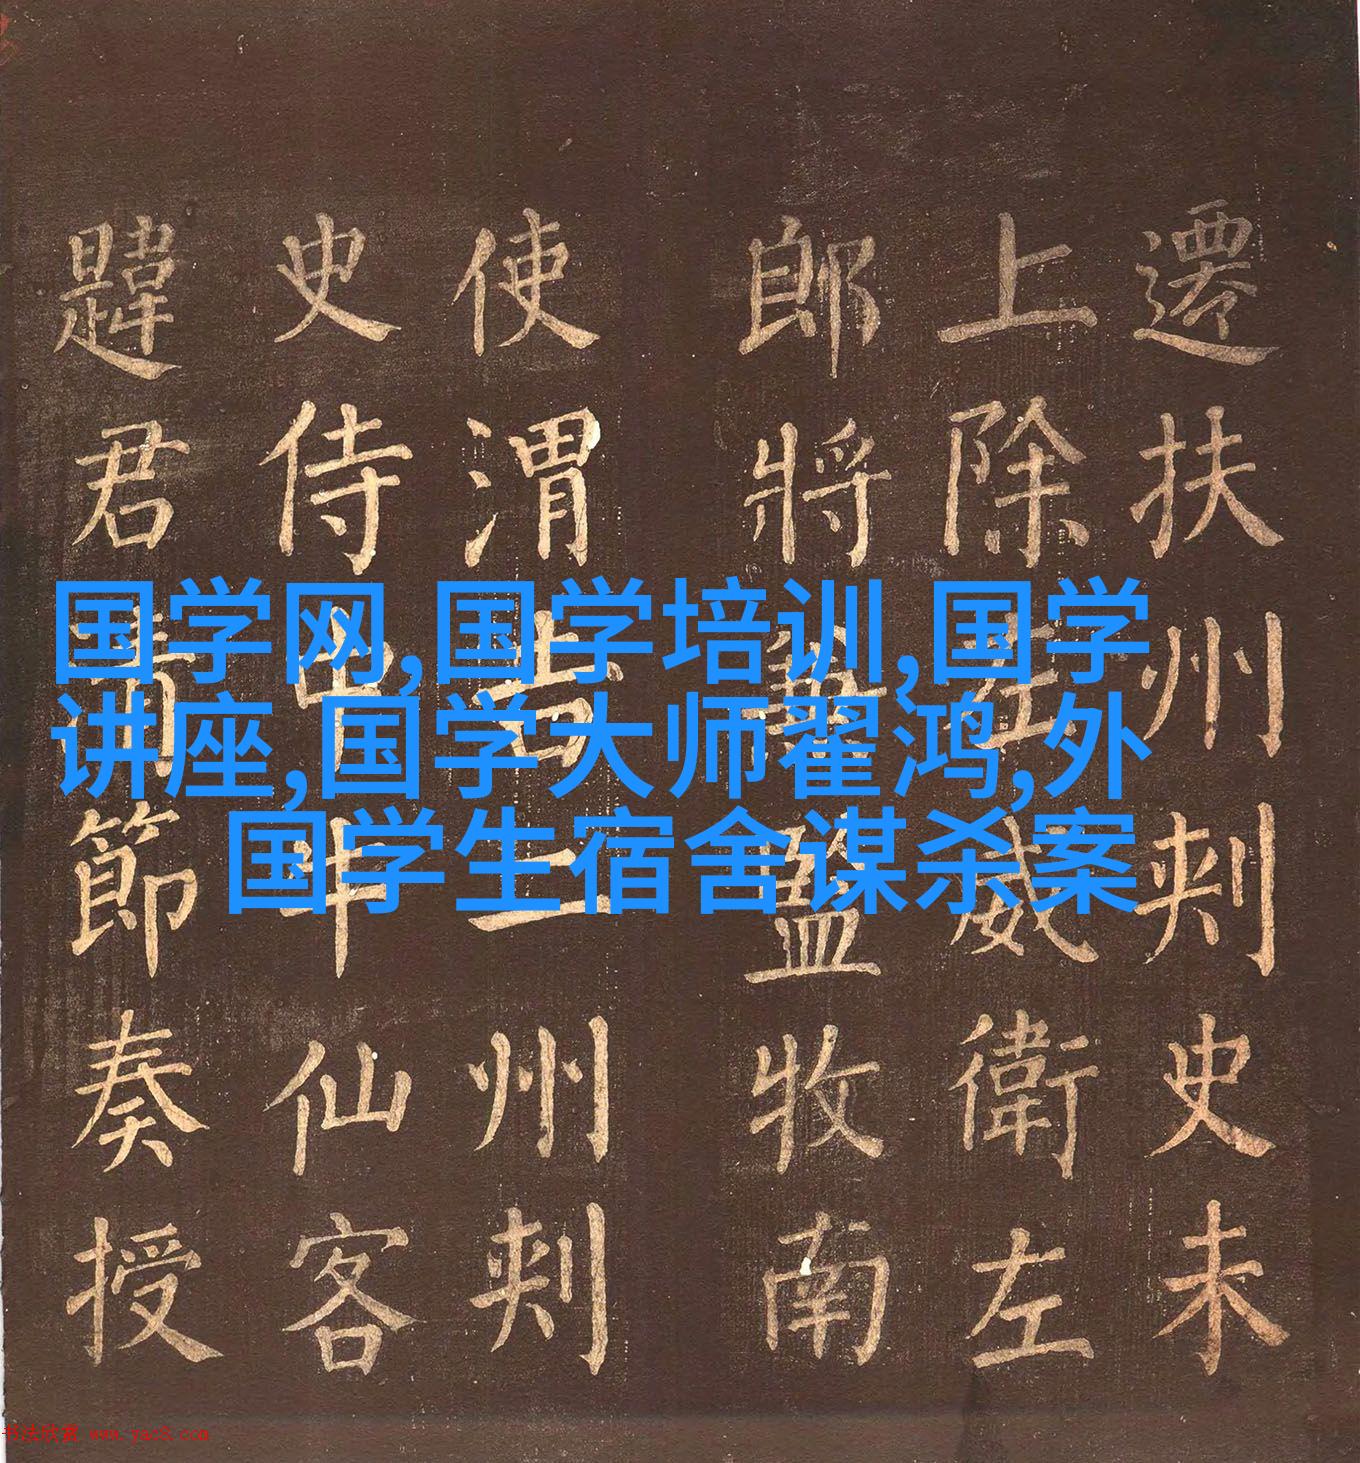 遷扶州刺史未
上除左威衛左
郎將兼監牧南
使渭一州刺
史侍中牛仙客
韙君清節奏授
国学网,国学培训,国学
讲座,国学大师翟鸿,外
国学生宿舍谋杀案
书法欣赏 www.yac8.com